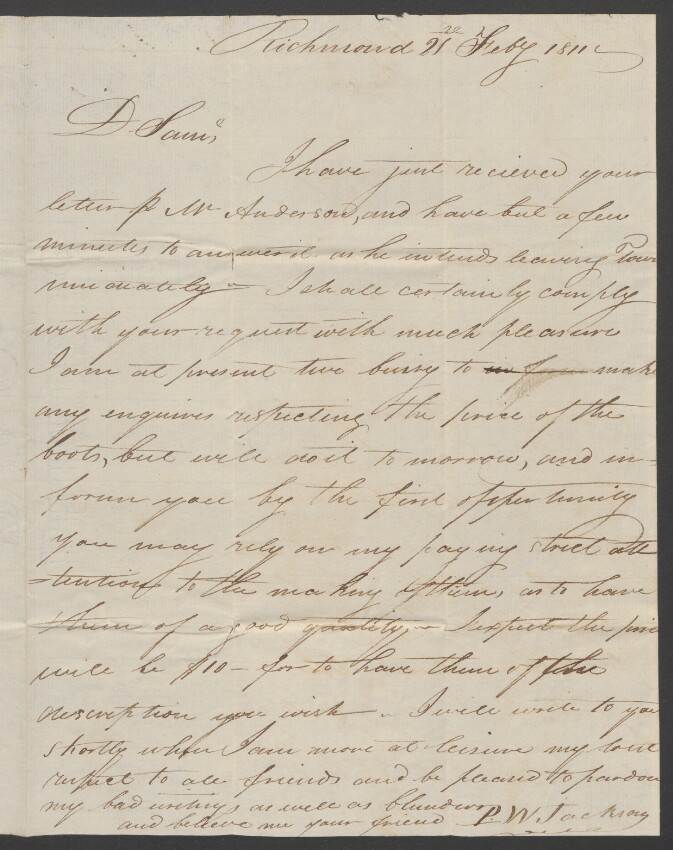 Richmond 21 22 Feby 1811
D Saml
I have just recieved your
letter p Mr Anderson, and have but a few
minutes to answer it as he intends leaving Town
I shall certainly comply
with your request with much pleasure
I am at present two buisy to make
any enquires respecting the price of the
boots, but will do it to morrow, and in-
form you by the first opportunity
You may rely on my paying strict att
-tention to the making of them, as to have
them of a good quality, - I expect the price
will be $10 - for to have them of the
description you wish - I will write to you
shortly when I am more at leisure my best
respect to all friends and be pleased to pardon
my bad writing as well as blunders
and believe me your friend P. W. Jackson